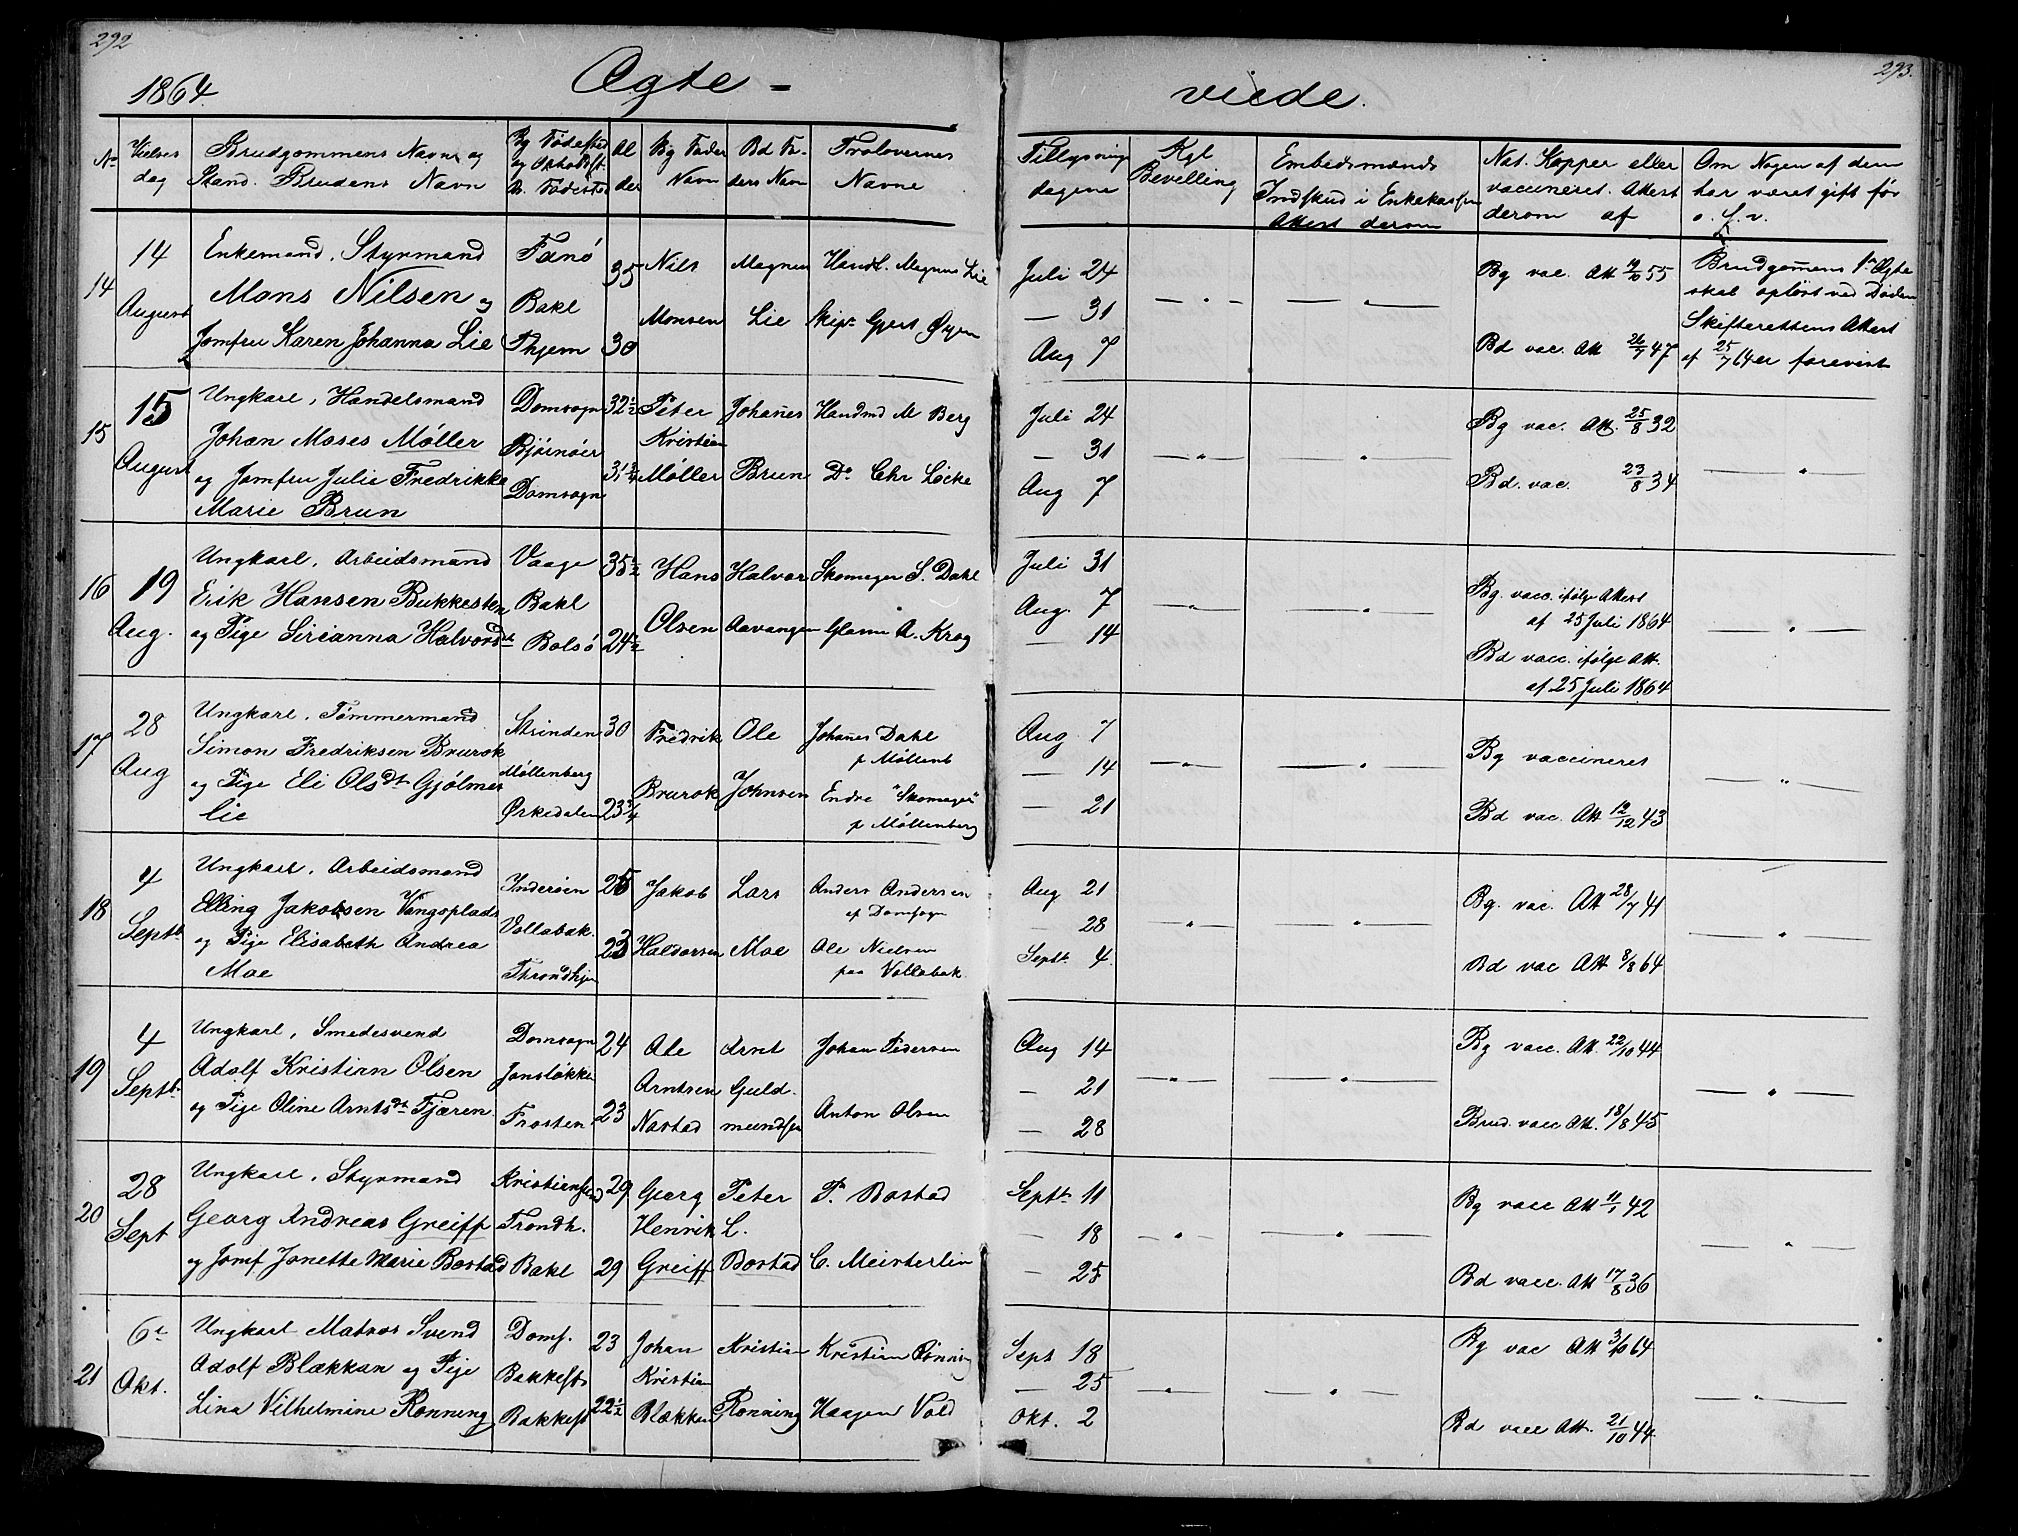 292
293.
1864.
Ægte - viede.
No
Vielses dag
Brudgommens Navn og Stand. Brudens Navn
Bg Fødested og Opholdst. Bs. Fødested
Al der
Bg Fader Navn
Bd Fa- ders Navn
Trolovernes Navne
Tillysnings dagene
Kgl Bevelling
Embedsmænds Indskud i Enkekassen Attest derom
Nat. Kopper eller vaccineret. Attest derom af
Om Nogen af dem har været gift før o. s. v.
14
14 August
Enkemand, Styrmand
Mons Nilsen og
Jomfru Karen Johanna Lie
Fanø
Bakl
Thjem
35
30
Nils
Monsen
Magnus
Lie
Handl. Magnus Lie
Skipr Gjert Øyen
Juli 24
— 31
Aug 7
— " —
— " —
Bg vac. Att 19/10 55
Bd vac. Att 26/7 47
Brudgomens 1ste Ægte
skab opløst ved Døden
Skifterettens Attest
af 25/7 64 er forevist
15
15 August
Ungkarl, Handelsmand
Johan Moses Møller
og Jomfru Julie Fredrikke
Marie Brun
Domsogn
Bjørnøer
Domsogn
32½
31¾
Peter
Kristian
Møller
Johanes
Brun
Handmd M Berg
Do Chr Løcke
Juli 24
— 31
Aug 7
— " —
— " —
Bg vac. Att. 25/8 32
Bd. vac. 23/8 34
— " —
16
19 Aug.
Ungkarl, Arbeidsmand
Erik Hansen Bukkesten
og Pige Sirianna Halvorsdt
Vaage
Bakl
Bolsø
35½
24½
Hans
Olsen
Halvor
Aavangen
Skomager S. Dahl
Glasm A. Krog
Juli 31
Aug. 7
— 14
— " —
— " —
Bg. vacc. ifølge Attest
af 25 Juli 1864
Bd vacc. ifølge Att.
af 25 Juli 1864
— " —
17
28 Aug
Ungkarl, Tømmermand
Simon Fredriksen Brurok
og Pige Eli Olsdt Gjølmes
lie
Strinden
Møllenberg
Ørkedalen
30
23¾
Fredrik
Brurok
Ole
Johnsen
Johanes Dahl
p Møllenb
Endre "Skomager"
p Møllenberg
Aug 7
— 14
— 21
— " —
— " —
Bg vaccineret
Bd vac. Att 12/12 43
— " —
18
4 Septb.
Ungkarl, Arbeidsmand
Elling Jakobsen Vangsplads
og Pige Elisabeth Andrea
Moe
Inderøen
Vollabak.
Throndhjem
25
23
Jakob
Haldorsen
Lars
Moe
Anders Andersen
af Domsogn
Ole Nielsen
paa Vollabak
Aug 21
— 28
Septb. 4
— " —
— " —
Bg. vac. Att 28/7 41
Bd vac Att 8/8 64
— " —
19
4 Septb.
Ungkarl, Smedesvend
Adolf Kristian Olsen
og Pige Oline Arntsdt Fjæren
Domsogn
Jonsløkke
Frosten
24
23
Ole
Arntsen
Nastad
Arnt
Guld-
mundsen
Johan Pedersen
Anton Olsen
Aug 14
— 21
— 28
— " —
— " —
Bg vacc. Att. 22/10 44
Brud. vacc Att. 18/8 45
— " —
20
28 Sept
Ungkarl, Styrmand
Georg Andreas Greiff
og Jomf Jonette Marie Bostad
Kristiansund
Trondh.
Bakl
29
29
Georg
Henrik
Greiff
Peter
L.
Bostad
P. Bostad
C. Meisterlin
Septb. 11
— 18
— 25
— " —
— " —
Bg vacc Att 11/1 42
Bd vacc. Att 17/8 36
— " —
21
6te Okt.
Ungkarl Matros Svend
Adolf Blækkan og Pige
Lina Vilhelmine Rønning
Doms.
Bakkest.
Bakkest
23
22½
Johan
Kristian
Blækken
Kristian
Rønning
Kristian Rønning
Haagen Vold
Sept 18
— 25
Okt. 2
— " —
— " —
Bg vac Att 3/10 64
Bd vacc Att. 21/10 44
— " —